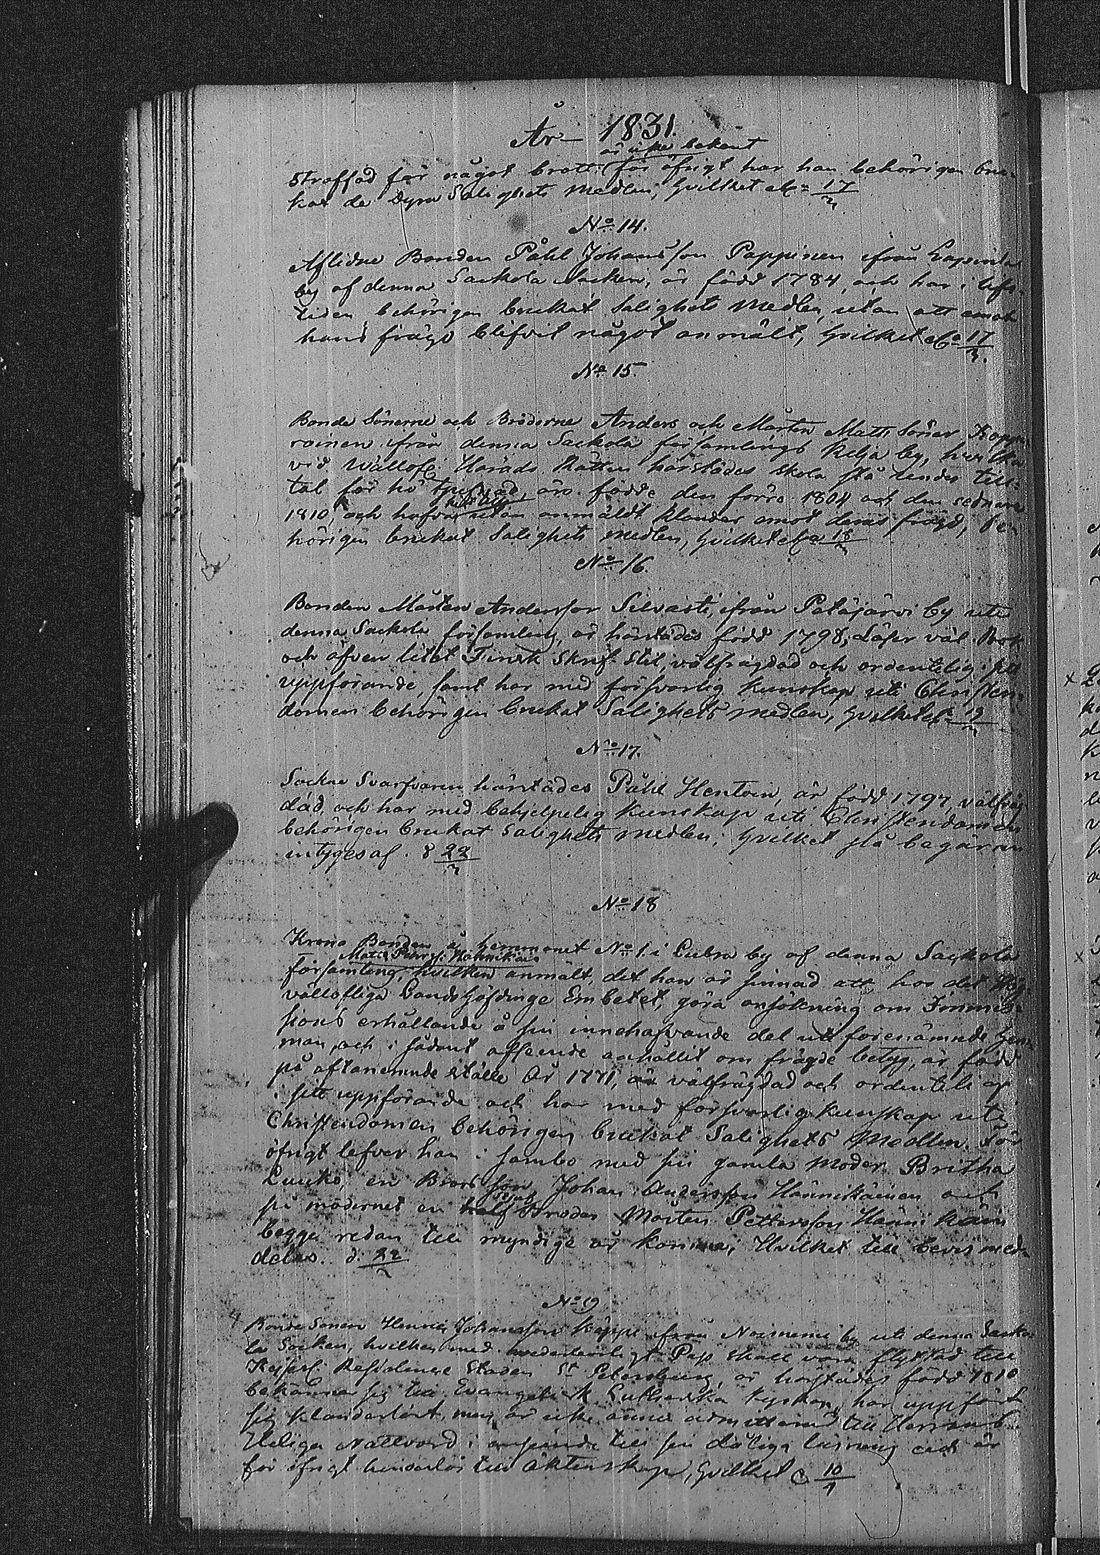 År 1831.
är icke bekant
Straffad för något brott; för öfrigt har han behörigen bru-
kat de dyra Salighets Medlen; hvilket etc: 17/2
No 14.
Aflidne Bonden Påhl Johansson Pappinen ifrån Lapinla
by af denna Sackola Socken, är född 1784, och har i lifs-
tiden behörigen brukat Salighets Medlen, utan att emot
hans frägd blifvit något anmält, hvilket etc: 17/2.
No 15.
Bonde Sönerne och Bröderne Anders och Mårten Matts Söner Kopp
roinen ifrån denna Sackola församlings Kelja by, hvilka
vid Wällofl: Härads Rätten härstädes skola stå under till-
tal för tjufnad, äro födde den förre 1804 och den sednare
1810, och hafva utan anmäldt klander emot deras frägd, be-
hörigen brukat Salighets medlen, hvilket etc: 18/2
No 16.
Bonden Mårten Andersson Silvasti, ifrån Petäjärvi by uti
denna Sackola församling, är härstädes född 1798, Läser väl Bok
och äfven litet Finsk Skrif Stil, välfrägdad och ordentelig i sitt
uppförande, samt har med försvarlig kunskap uti Christen-
domen behörigen brukat Salighets medlen, hvilket etc: 19/2
No 17.
Sockne Svarfvaren härstädes Påhl Hentoin, är född 1797, välfräg
dad, och har med behjelpelig kunskap uti Christendomen
behörigen brukat Salighets medlen; hvilket på begäran
intygas af. d 22/2
No 18
Krono Bonden å hemmanet No 1. i Lutsa by af denna Sackola
Matts Pettersson Hännikäin
församling, hvilken anmält, det han är sinnad att hos det Hög
vällofliga Landshöfdinge Embetet, göra ansökning om Immis-
sions erhållande å sin innehafvande del uti förenämnde hem-
man, och i sådant afseende anhållit om frägde betyg, är född
på oftanämnde ställe År 1771, är välfrägdad och ordentelig
i sitt uppförande och har med försvarlig kunskap uti
Christendomen behörigen brukat Salighets Medlen. För
öfrigt lefver han i sambo med sin gamla Moder Britha
Luukko, en Brors son Johan Andersson Hännikäinen och
på mödernet en half Broder Mårten Pettersson Hännikäin
begge redan till myndige år komne; Hvilket till bevis med-
delas. d. 22/2
No 19
Bonde Sonen Henric Johansson Käppi ifrån Norsmemi by uti denna Sacko
la Socken, hvilken med vederbörligt Pass skall vara flyttad till
Kejserl: Residence Staden St Petersburg, är härstädes född 1810
bekänner sig till Evangelisk Lutherska kyrkan, har uppfört
sig klanderfritt, men är icke ännu admitterad till Herrans
Heliga Nattvard i anseende till sin dåliga läsning och är
för öfrigt hinderlös till Äktenskap, hvilket etc 10/1